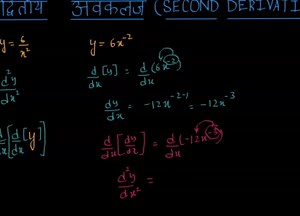 द्वितीय अवकलज (SECOND DERIVATI
y = 6/x² y = 6x⁻²
d²y/dx² d/dx [y] = d/dx (6x⁻²)
dy/dx = -12x⁻²⁻¹ = -12x⁻³
d/dx [d/dx [y]] d/dx [dy/dx] = d/dx (-12x⁻³)
d²y/dx² =